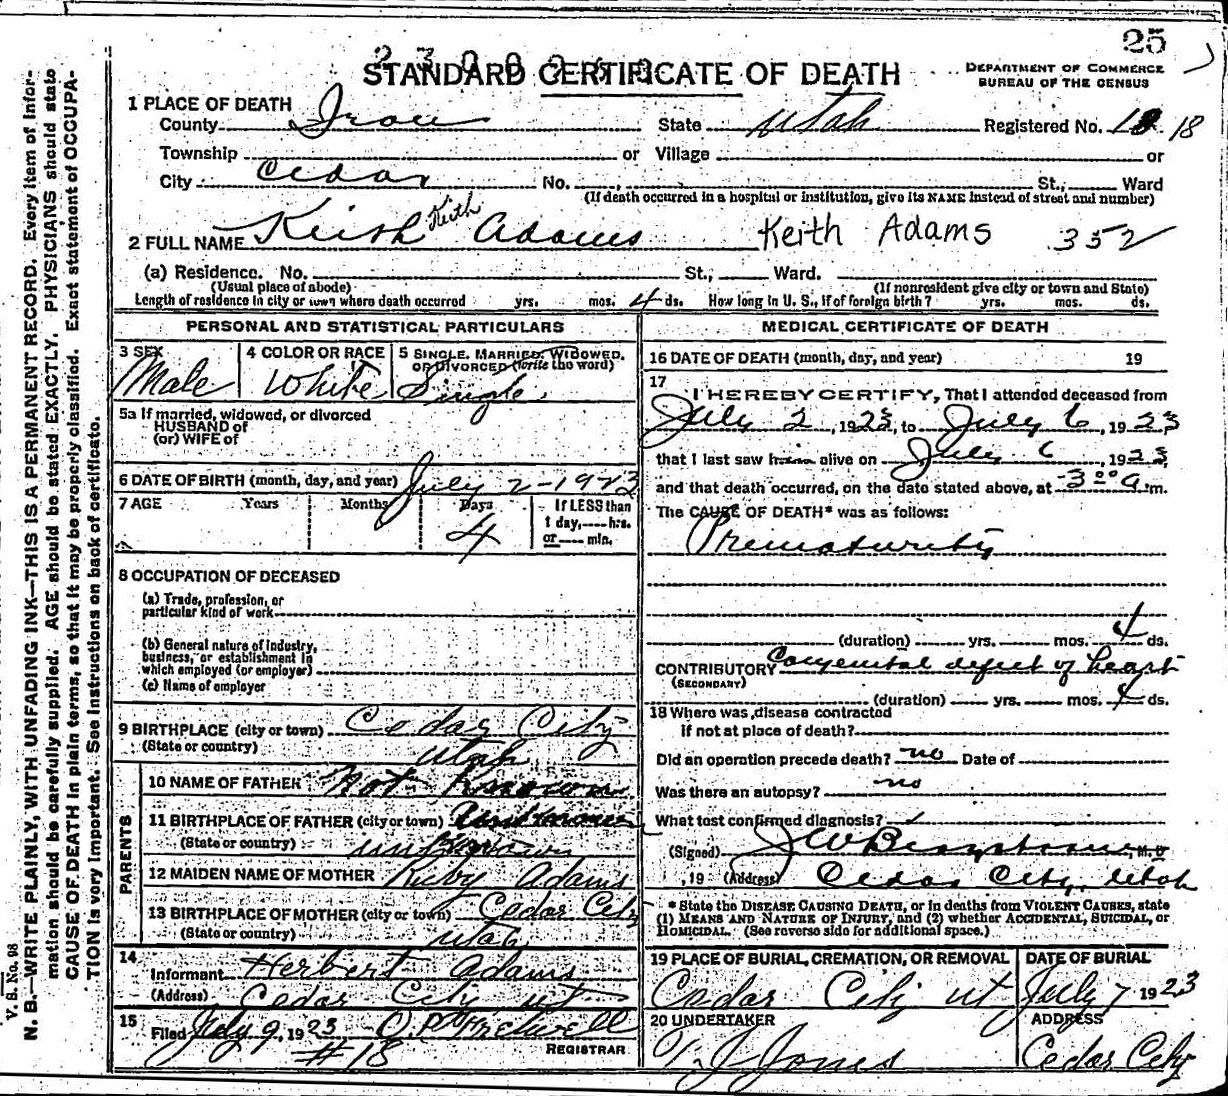 25
2300252
STANDARD CERTIFICATE OF DEATH
DEPARTMENT OF COMMERCE
BUREAU OF THE CENSUS
1 PLACE OF DEATH
County Iron State Utah Registered No. 18 18
Township or Village or
City Cedar No. St., Ward
(If death occurred in a hospital or institution, give its NAME instead of street and number)
2 FULL NAME Keith Keith Adams Keith Adams 352
(a) Residence. No. St., Ward.
(Usual place of abode) (If nonresident give city or town and State)
Length of residence in city or town where death occurred yrs. mos. 4 ds. How long in U. S., if of foreign birth? yrs. mos. ds.
PERSONAL AND STATISTICAL PARTICULARS
3 SEX 4 COLOR OR RACE 5 SINGLE, MARRIED, WIDOWED, OR DIVORCED (write the word)
Male White Single
5a If married, widowed, or divorced
HUSBAND of
(or) WIFE of
6 DATE OF BIRTH (month, day, and year) July 2-1923
7 AGE Years Months Days If LESS than
1 day, hrs.
or min.
4
8 OCCUPATION OF DECEASED
(a) Trade, profession, or
particular kind of work
(b) General nature of industry,
business, or establishment in
which employed (or employer)
(c) Name of employer
9 BIRTHPLACE (city or town) Cedar City
(State or country) Utah
PARENTS
10 NAME OF FATHER Not Known
11 BIRTHPLACE OF FATHER (city or town) Unknown
(State or country) unknown
12 MAIDEN NAME OF MOTHER Ruby Adams
13 BIRTHPLACE OF MOTHER (city or town) Cedar City
(State or country) Utah
14
Informant Herbert Adams
(Address) Cedar City ut
15
Filed July 9, 1923
#18 REGISTRAR
MEDICAL CERTIFICATE OF DEATH
16 DATE OF DEATH (month, day, and year) 19
17
I HEREBY CERTIFY, That I attended deceased from
July 2, 1923, to July 6, 1923
that I last saw him alive on July 6, 1923,
and that death occurred, on the date stated above, at 3 00 a m.
The CAUSE OF DEATH* was as follows:
Prematurity
(duration) yrs. mos. 4 ds.
CONTRIBUTORY Congenital defect of heart
(SECONDARY)
(duration) yrs. mos. 4 ds.
18 Where was disease contracted
if not at place of death?
Did an operation precede death? no Date of
Was there an autopsy? no
What test confirmed diagnosis?
(Signed) J W M. D
, 19 (Address) Cedar City, Utah
* State the DISEASE CAUSING DEATH, or in deaths from VIOLENT CAUSES, state
(1) MEANS AND NATURE OF INJURY, and (2) whether ACCIDENTAL, SUICIDAL, or
HOMICIDAL. (See reverse side for additional space.)
19 PLACE OF BURIAL, CREMATION, OR REMOVAL DATE OF BURIAL
Cedar City ut July 7 1923
20 UNDERTAKER ADDRESS
T J Jones Cedar City
V. B. No. 98
N. B.—WRITE PLAINLY, WITH UNFADING INK—THIS IS A PERMANENT RECORD. Every item of infor-
mation should be carefully supplied. AGE should be stated EXACTLY. PHYSICIANS should state
CAUSE OF DEATH in plain terms, so that it may be properly classified. Exact statement of OCCUPA-
TION is very important. See instructions on back of certificate.